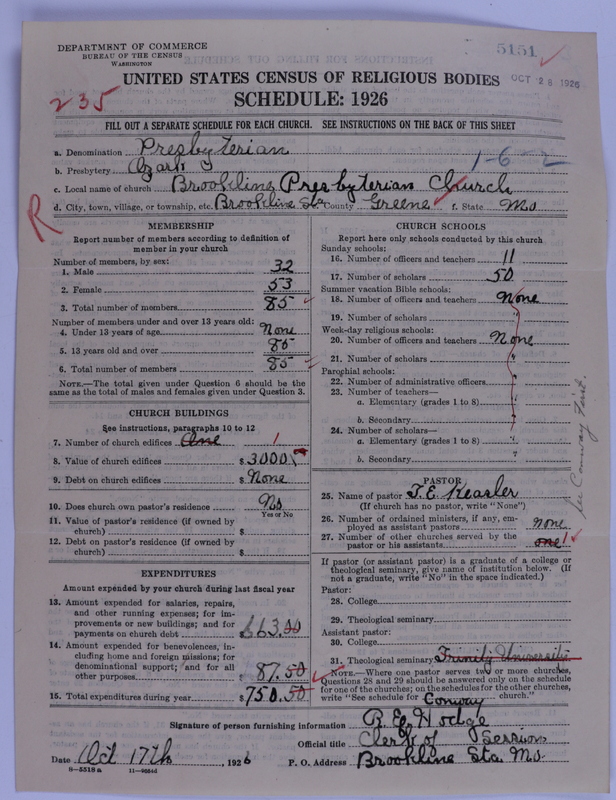 DEPARTMENT OF COMMERCE
BUREAU OF THE CENSUS
WASHINGTON
5151
OCT 28 1926
UNITED STATES CENSUS OF RELIGIOUS BODIES
SCHEDULE: 1926
235
FILL OUT A SEPARATE SCHEDULE FOR EACH CHURCH. SEE INSTRUCTIONS ON THE BACK OF THIS SHEET
a. Denomination Presbyterian
b. Presbytery Ozark 1-6-2
c. Local name of church Brookline Presbyterian Church
d. City, town, village, or township, etc. Brookline Sta County Greene f. State Mo
R
MEMBERSHIP
Report number of members according to definition of member in your church
Number of members, by sex:
1. Male 32
2. Female 53
3. Total number of members 85
Number of members under and over 13 years old:
4. Under 13 years of age None
5. 13 years old and over 85
6. Total number of members 85
NOTE.—The total given under Question 6 should be the
same as the total of males and females given under Question 3.
CHURCH BUILDINGS
See instructions, paragraphs 10 to 12
7. Number of church edifices One 1
8. Value of church edifices $ 3000
9. Debt on church edifices $ None
10. Does church own pastor's residence No
Yes or No
11. Value of pastor's residence (if owned by
church) $
12. Debt on pastor's residence (if owned by
church) $
EXPENDITURES
Amount expended by your church during last fiscal year
13. Amount expended for salaries, repairs,
and other running expenses; for im-
provements or new buildings; and for
payments on church debt $ 663.00
14. Amount expended for benevolences, in-
cluding home and foreign missions; for
denominational support; and for all
other purposes $ 87.50
15. Total expenditures during year $ 750.50
CHURCH SCHOOLS
Report here only schools conducted by this church
Sunday schools:
16. Number of officers and teachers 11
17. Number of scholars 50
Summer vacation Bible schools:
18. Number of officers and teachers None
19. Number of scholars "
Week-day religious schools:
20. Number of officers and teachers None
21. Number of scholars "
Parochial schools:
22. Number of administrative officers "
23. Number of teachers—
a. Elementary (grades 1 to 8) "
b. Secondary "
24. Number of scholars—
a. Elementary (grades 1 to 8) "
b. Secondary "
PASTOR
25. Name of pastor T. E. Keasler
(If church has no pastor, write "None")
26. Number of ordained ministers, if any, em-
ployed as assistant pastors none
27. Number of other churches served by the
pastor or his assistants one 1
See Conway First.
If pastor (or assistant pastor) is a graduate of a college or
theological seminary, give name of institution below. (If
not a graduate, write "No" in the space indicated.)
Pastor:
28. College
29. Theological seminary
Assistant pastor:
30. College
31. Theological seminary Trinity University
NOTE.—Where one pastor serves two or more churches,
Questions 28 and 29 should be answered only on the schedule
for one of the churches; on the schedules for the other churches,
write "See schedule for Conway church."
Signature of person furnishing information R. E. Hodge
Official title Clerk of Session
Date Oct 17th, 1926 P. O. Address Brookline Sta. Mo.
8—5518a 11—9664d